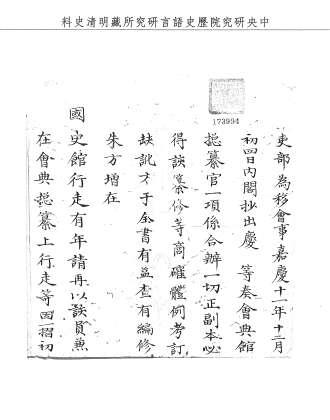 中央研究院歷史語言研究所藏明清史料
173994
吏部為移會事嘉慶十一年十二月
初四日內閣抄出慶 等奏會典館
總纂官一項係合辦一切正副本必
得該纂修等商確體例考訂
訛才于全書有益查有編修
朱方增在
國
史館行走有年請再以該員兼
在會典總纂上行走等因一摺初